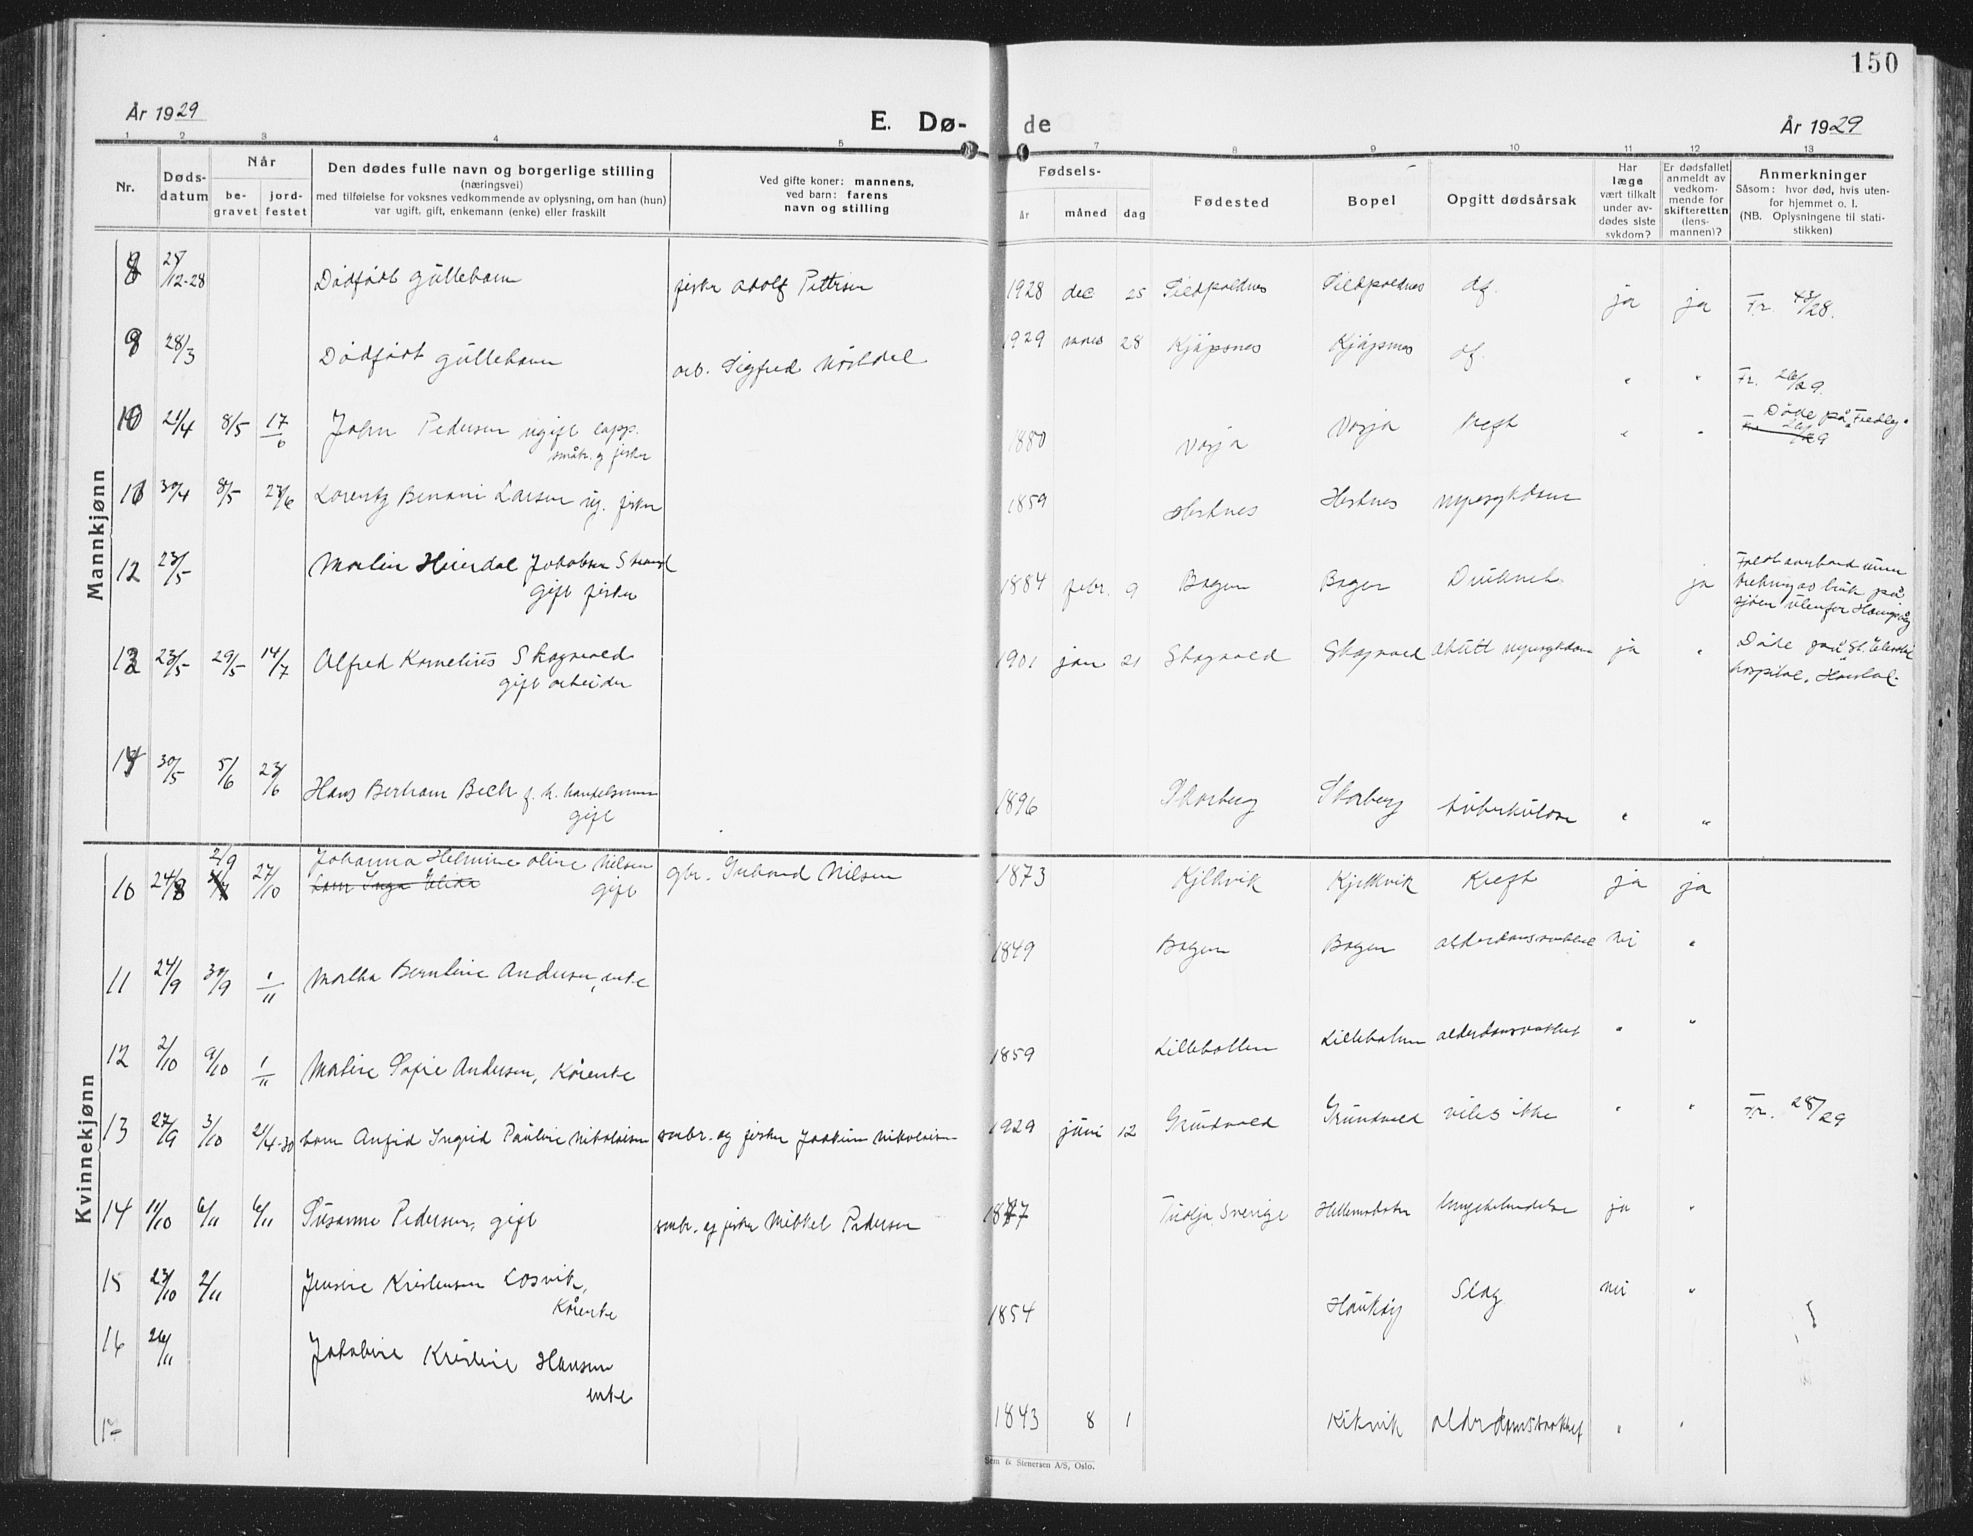 150
År 1929
E. Dø-
de
År 1929
1 2 3 4 5 7 8 9 10 11 12 13
Nr.
Døds-
datum
Når
be-
gravet
jord-
festet
Den dødes fulle navn og borgerlige stilling
(næringsvei)
med tilføielse for voksnes vedkommende av oplysning, om han (hun)
var ugift, gift, enkemann (enke) eller fraskilt
Ved gifte koner: mannens,
ved barn: farens
navn og stilling
Fødsels-
år
måned
dag
Fødested
Bopel
Opgitt dødsårsak
Har
læge
vært tilkalt
under av-
dødes siste
sykdom?
Er dødsfallet
anmeldt av
vedkom-
mende for
skifteretten
(lens-
mannen)?
Anmerkninger
Såsom: hvor død, hvis uten-
for hjemmet o. l.
(NB. Oplysningene til stati-
stikken)
Mannkjønn
8 /12-28 Dødfødt guttebarn fisker Adolf Pettersen 1928 dec 25 df. ja ja Fr. 43/28.
9 28/3 Dødfødt guttebarn arb. Sigfred 1929 mars 28 Kjøpsnes Kjøpsnes df. " " Fr.
10 21/4 8/5 17/6 John Pedersen ugift lapp.
småbr. og fisker 1880 Vasja Vasja Kreft " " Døde på
11 30/4 8/5 23/6 Lorentz Benoni Larsen ug. fisker 1859 Hestnes Hestnes nyresykdom
12 23/5 Martin Heierdal Jakobsen Strand
gift fisker 1884 febr. 9 Bogen Bogen Druknet ja Falt overbord under
trekning av bruk på
sjøen utenfor
13 23/5 29/5 14/7 Alfred Kornelius Skogvold
gift arbeider 1901 jan 21 Skogvold Skogvold akutt nyresykdom ja " Døde på St.
hospital, Harstad.
14 30/5 5/6 23/6 Hans Bertram Bech f. h. handelsmann
gift 1896 Skarberg Skarberg tuberkulose " "
Kvinnekjønn
10 24/8 2/9 27/10 Johanna Helmine Oline Nilsen
barn Inga
gift gbr. Nilsen 1873 Kjelkvik Kjelkvik Kreft ja ja
11 24/9 30/9 1/11 Martha Berntine Andersen, enke 1849 Bogen Bogen alderdomssvakhet nei "
12 2/10 9/10 1/11 Martine Sofie Andersen, Kårenke 1859 Lillebalten alderdomssvakhet " "
13 27/9 3/10 21/4-30 barn Anfid Ingrid Pauline Nikolaisen smbr. og fisker Joakim Nikolaisen 1929 juni 12 Grundvold Grundvold vites ikke " " Fr. 28/29
14 11/10 6/11 6/11 Susanne Pedersen, gift smbr. og fisker Mikkel Pedersen Sverige ja "
15 23/10 2/11 Jensine Kristensen Losvik,
Kårenke 1854 Haukøy Slag nei "
16 26/11 Jakobine Kristine Hansen
enke 1843 8 1 Kikvik alderdomssvakhet " "
Sem & Stenersen A/S, Oslo.